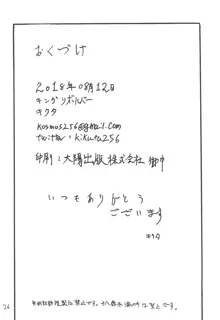 おくづけ
2018年08月12日
キングリボルバー
キクタ
kosmos256@gmail.com
twitter : kikuta256
印刷：大陽出版株式会社 御中
いつもありがとう
ございます
キクタ
24
※無断転載複製は禁止です。十八歳未満の方は禁止です。